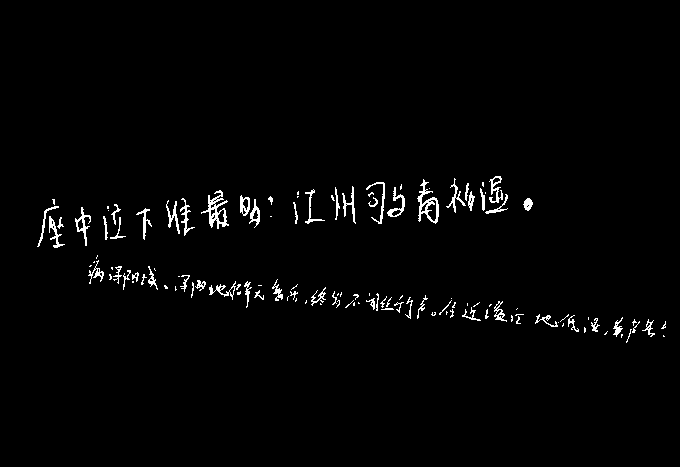 座中泣下谁最多？江州司马青衫湿。
病浔阳城。浔阳地僻无音乐，终岁不闻丝竹声。住近湓江地低湿，黄芦苦